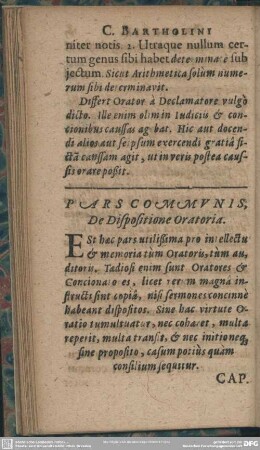 C. BARTHOLINI
niter notis. 2. Utraque nullum cer-
tum genus sibi habet determinatè sub
jectum. Sicut Arithmetica solum nume-
rum sibi determinavit.
Differt Orator à Declamatore vulgò
dicto. Ille enim olim in Judiciis & con-
cionibus caussas agebat. Hic aut docen-
di alios aut seipsum exercendi gratiâ fi-
ctā caussam agit, ut in veris postea caus-
sis orare possit.
PARS COMMVNIS,
De Dispositione Oratoria.
ESt hac pars utilissima pro intellectu
& memoria tum Oratoris, tum au-
ditoru. Tadiosi enim sunt Oratores &
Concionatores, licet rerum magna in-
structi sint copiâ, nisi sermones concinnè
habeant dispositos. Sine hac virtute O-
ratio tumultuatur, nec cohæret, multa
repetit, multa transit, & nec initio neq
fine proposito, casum potius quàm
consilium sequitur.
CAP.